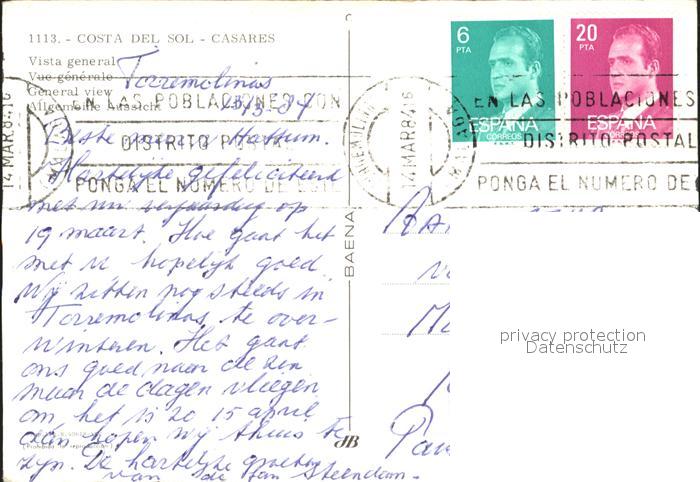 1113. - COSTA DEL SOL - CASARES
Vista general
Vue générale
General view
Allgemeine Ansicht
6
PTA
20
PTA
ESPAÑA
CORREOS
ESPAÑA
CORREOS
EN LAS POBLACIONES CON
DISTRITO POSTAL
PONGA EL NUMERO DE ESTE
14 MAR 84.16
14 MAR 84.16
EN LAS POBLACIONES
DISTRITO POSTAL
PONGA EL NUMERO DE
Torremolinos
Hartelijke gefeliciteerd
met uw verjaardag op
19 maart. Hoe gaat het
met u hopelijk goed
Wij zitten nog steeds in
Torremolinos te over-
winteren. Het gaat
ons goed naar de zin
maar de dagen vliegen
om het is zo 15 april
dan hopen wij thuis te
zijn. De hartelijke groeten
van de Jan Steendam.
BAENA
JB
privacy protection
Datenschutz